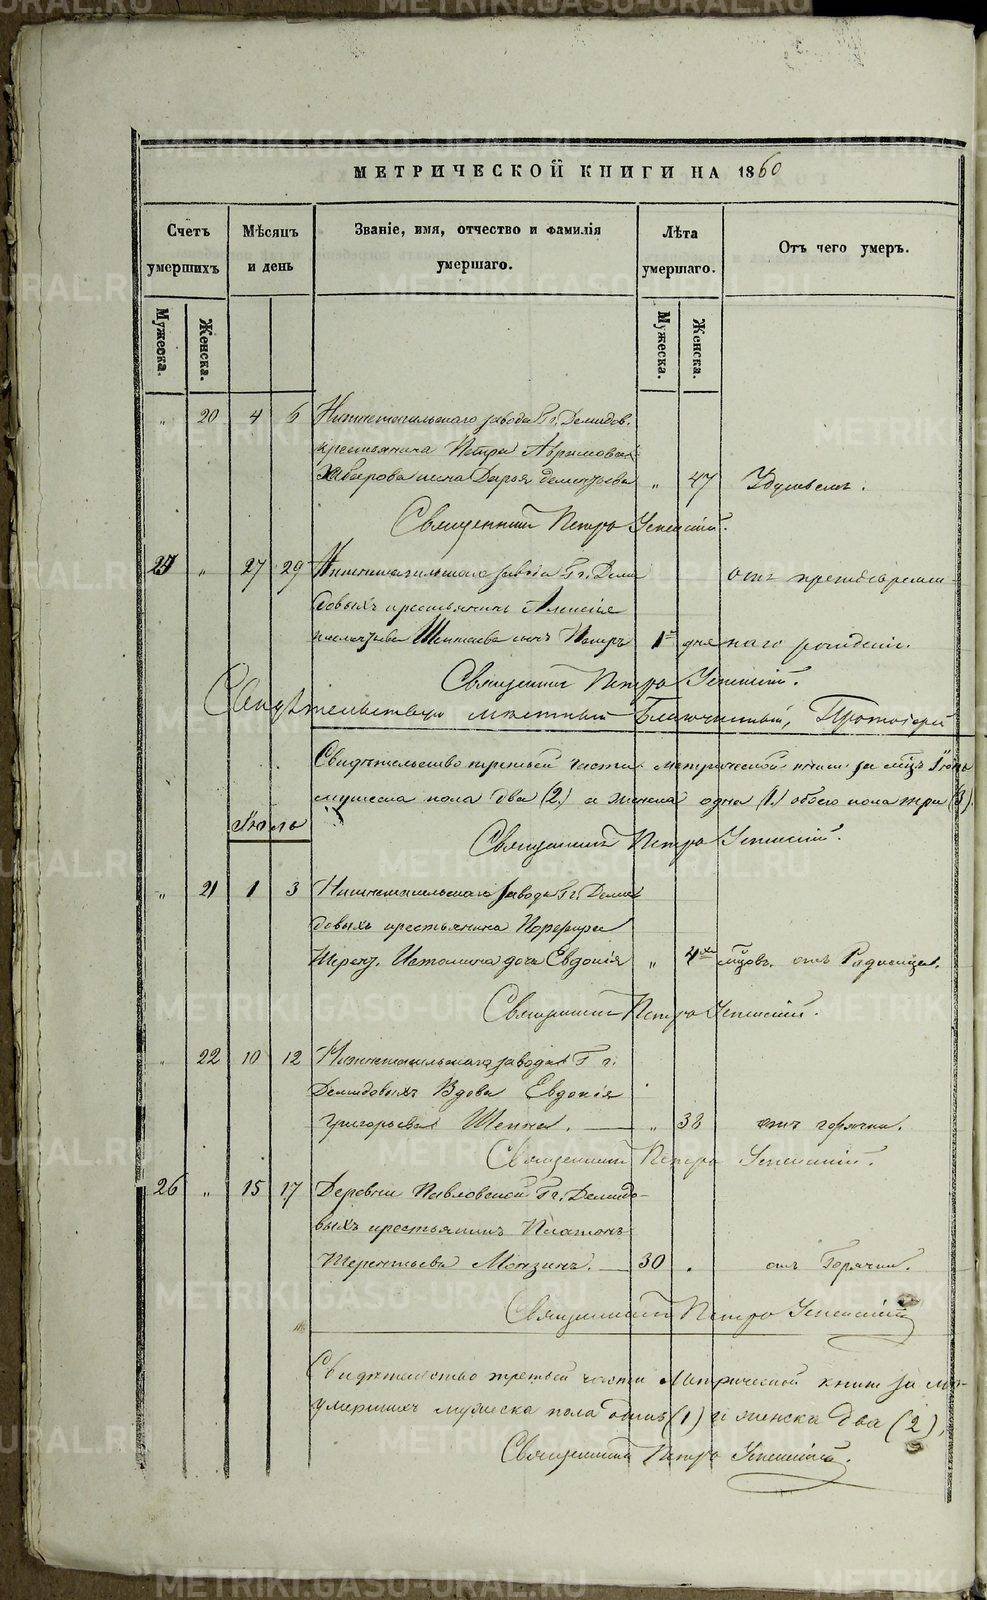 МЕТРИЧЕСКОЙ КНИГИ НА 1860
Счетъ умершихъ
Мѣсяцъ и день
Званіе, имя, отчество и фамилія умершаго.
Лѣта умершаго.
Отъ чего умеръ.
Мужеска.
Женска.
Мужеска.
Женска.
„ 20 4 6 Нижнетагильскаго завода Гг. Демидов.
крестьянина Петра
Хабарова жена Дарья Дементьева „ 47
Священникъ Петръ Успенскій.
25 „ 27 29 Нижнетагильскаго завода Гг. Деми
довыхъ крестьянина Алексія отъ преждевремен
сынъ Петръ 1 дне наго рожденія.
Священникъ Петръ Успенскій.
Свидѣтельствую мѣстный Благочинный, Протоіерей
Свидѣтельство третьей части метрической книги за мѣц Іюнь
мужеска пола два (2.) а женска одна (1.) обоего пола три (3).
Іюль
Священникъ Петръ Успенскій.
„ 21 1 3 Нижнетагильскаго завода Гг. Деми
довыхъ крестьянина Порфирія
Истомина дочь Евдокія „ 4 мѣцовъ. отъ Родимца.
Священникъ Петръ Успенскій.
„ 22 10 12 Нижнетагильскаго завода Г г.
Демидовыхъ Вдова Евдокія
Григорьева — „ 38 отъ горячки.
Священникъ Петръ Успенскій.
26 „ 15 17 Деревни Павловской Гг. Демидо-
выхъ крестьянинъ Платонъ
Терентьевъ Монзинъ. — 30 „ отъ Горячки.
Священникъ Петръ Успенскій
Свидѣтельство третьей части Метрической книги за
умершихъ мужеска пола одинъ (1) и женска два (2),
Священникъ Петръ Успенскій.
METRIKI.GASO-URAL.RU